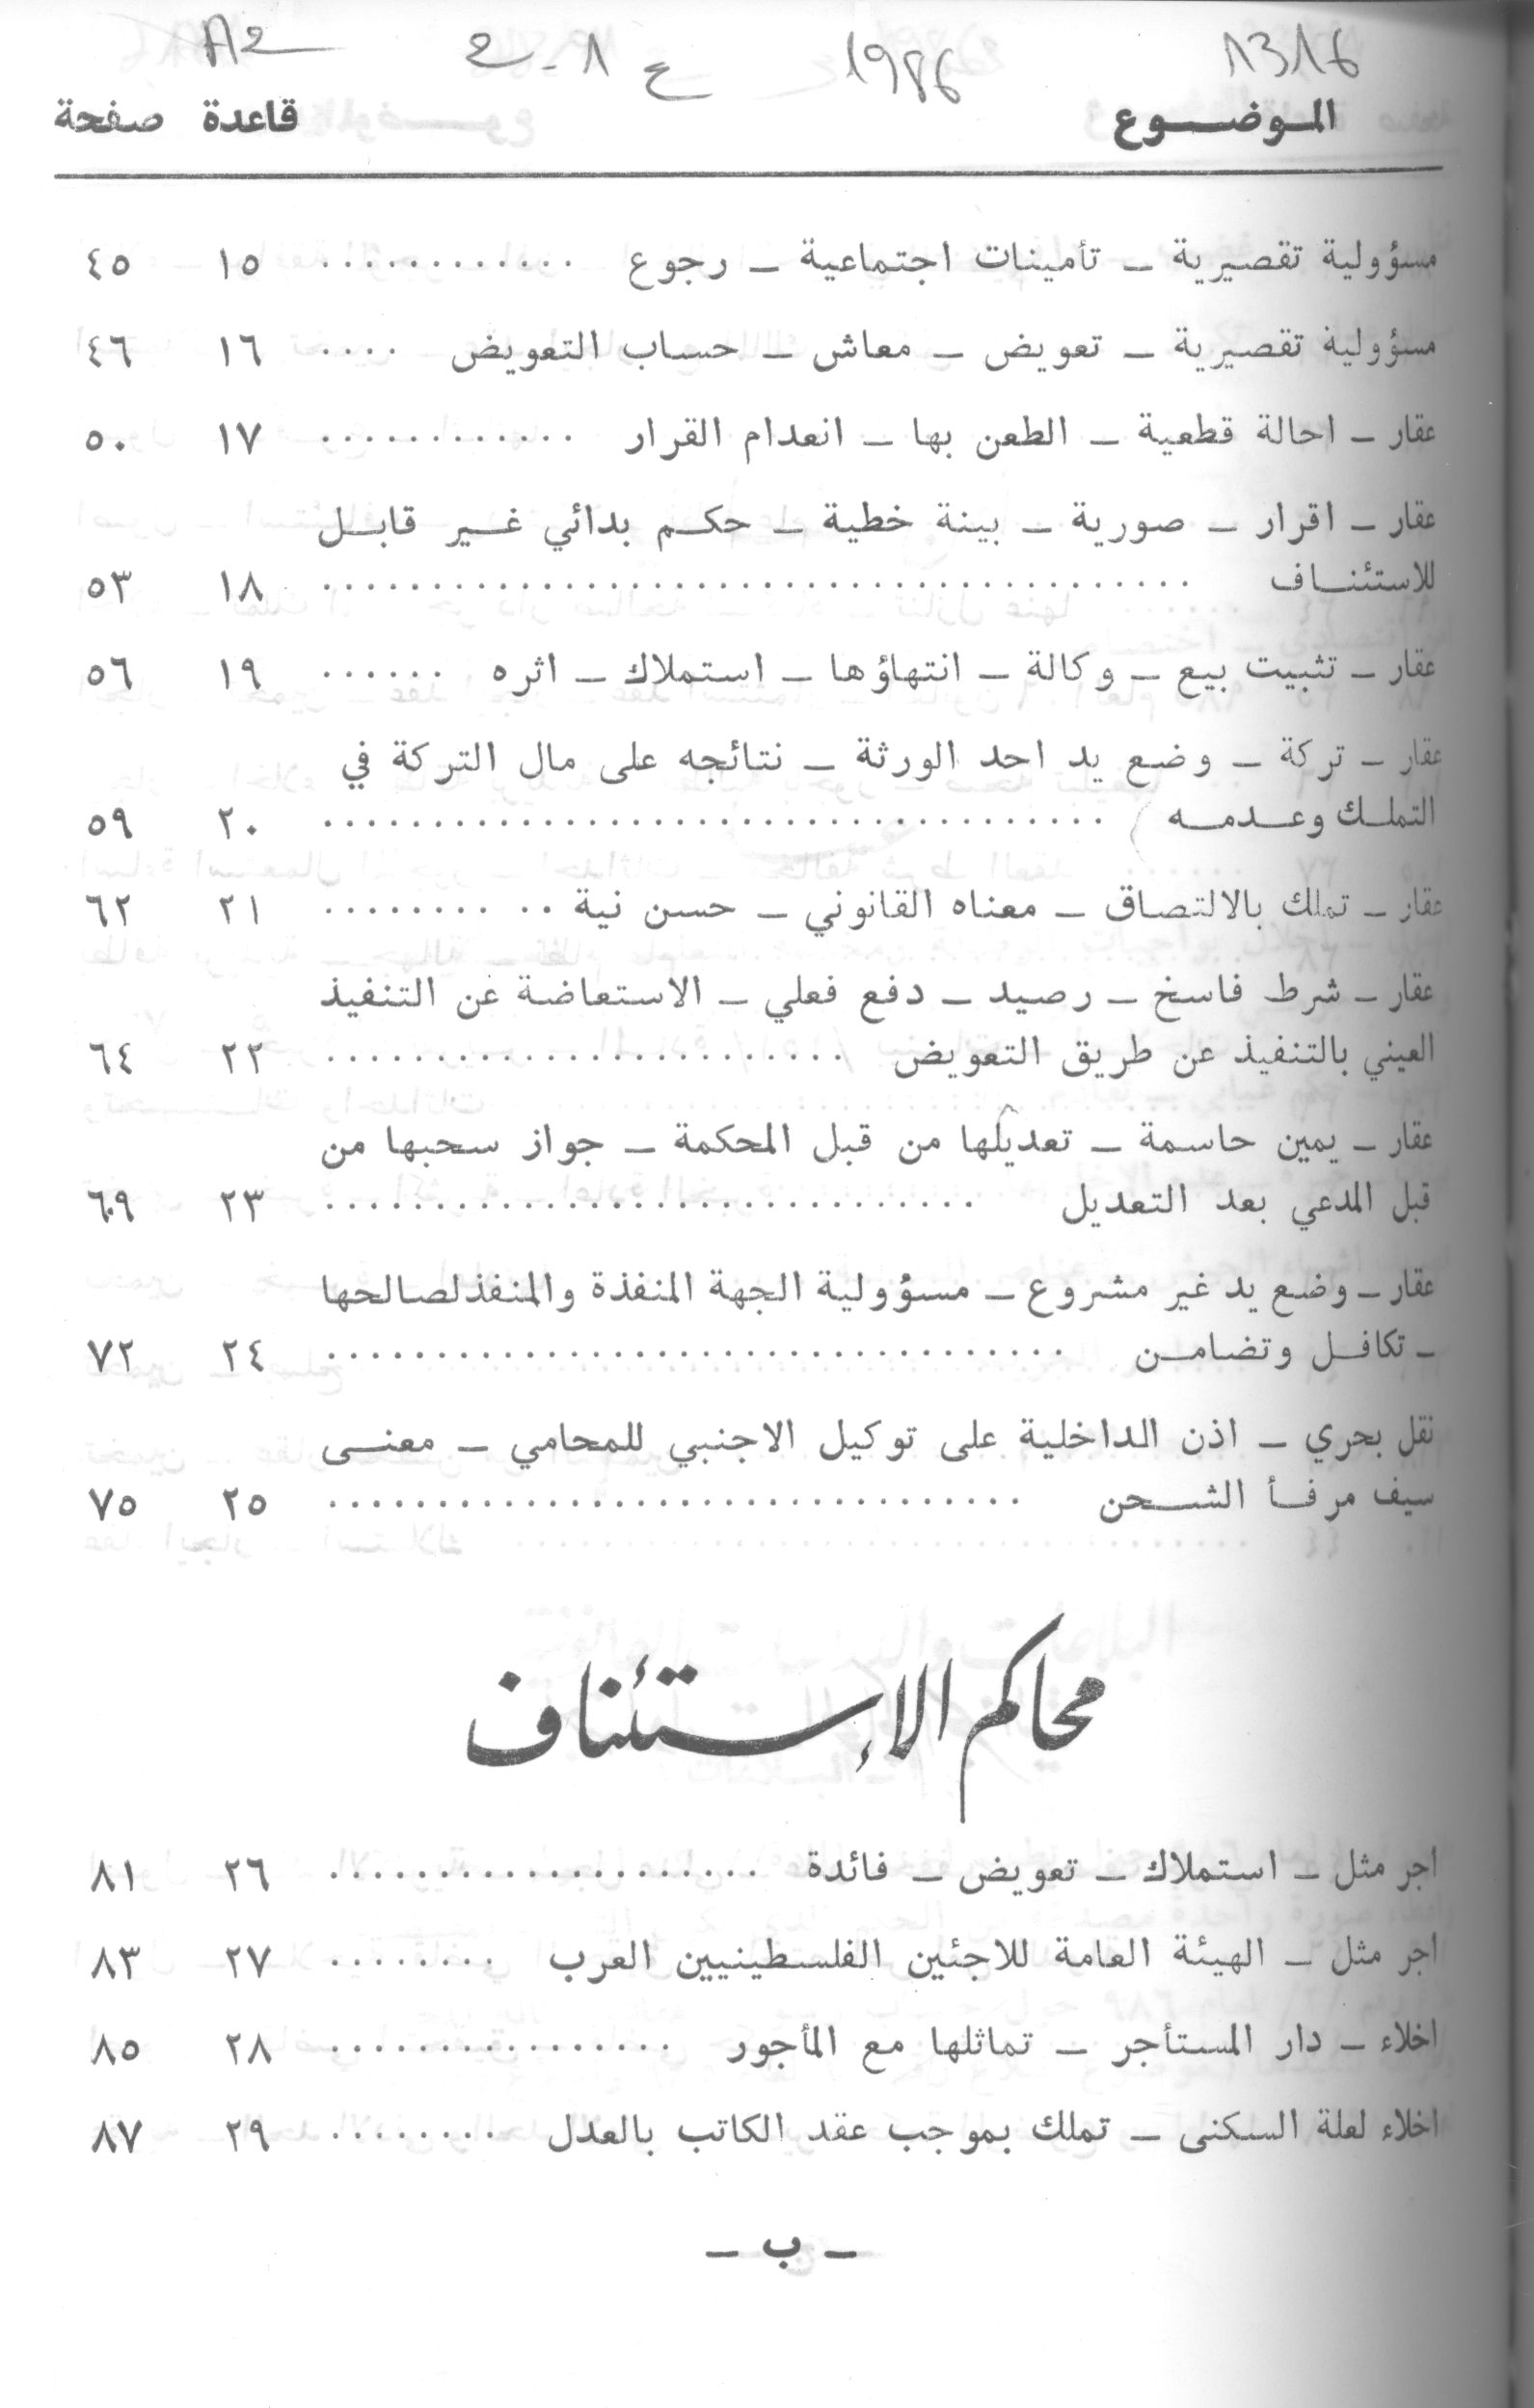 1316 1986 ع 1-2 A2
الموضوع قاعدة صفحة
مسؤولية تقصيرية – تأمينات اجتماعية – رجوع ............ ١٥ ٤٥
مسؤولية تقصيرية – تعويض – معاش – حساب التعويض .... ١٦ ٤٦
عقار – احالة قطعية – الطعن بها – انعدام القرار ............ ١٧ ٥٠
عقار – اقرار – صورية – بينة خطية – حكم بدائي غير قابل
للاستئناف ........................................ ١٨ ٥٣
عقار – تثبيت بيع – وكالة – انتهاؤها – استملاك – اثره ...... ١٩ ٥٦
عقار – تركة – وضع يد احد الورثة – نتائجه على مال التركة في
التملك وعدمه .................................... ٢٠ ٥٩
عقار – تملك بالالتصاق – معناه القانوني – حسن نية .......... ٢١ ٦٢
عقار – شرط فاسخ – رصيد – دفع فعلي – الاستعاضة عن التنفيذ
العيني بالتنفيذ عن طريق التعويض ........................ ٢٢ ٦٤
عقار – يمين حاسمة – تعديلها من قبل المحكمة – جواز سحبها من
قبل المدعي بعد التعديل .............................. ٢٣ ٦٩
عقار – وضع يد غير مشروع – مسؤولية الجهة المنفذة والمنفذ لصالحها
– تكافل وتضامن .................................. ٢٤ ٧٢
نقل بحري – اذن الداخلية على توكيل الاجنبي للمحامي – معنى
سيف مرفأ الشحن ................................ ٢٥ ٧٥
محاكم الإستئناف
اجر مثل – استملاك – تعويض – فائدة .................... ٢٦ ٨١
اجر مثل – الهيئة العامة للاجئين الفلسطينيين العرب ........ ٢٧ ٨٣
اخلاء – دار المستأجر – تماثلها مع المأجور ................ ٢٨ ٨٥
اخلاء لعلة السكنى – تملك بموجب عقد الكاتب بالعدل ........ ٢٩ ٨٧
– ب –